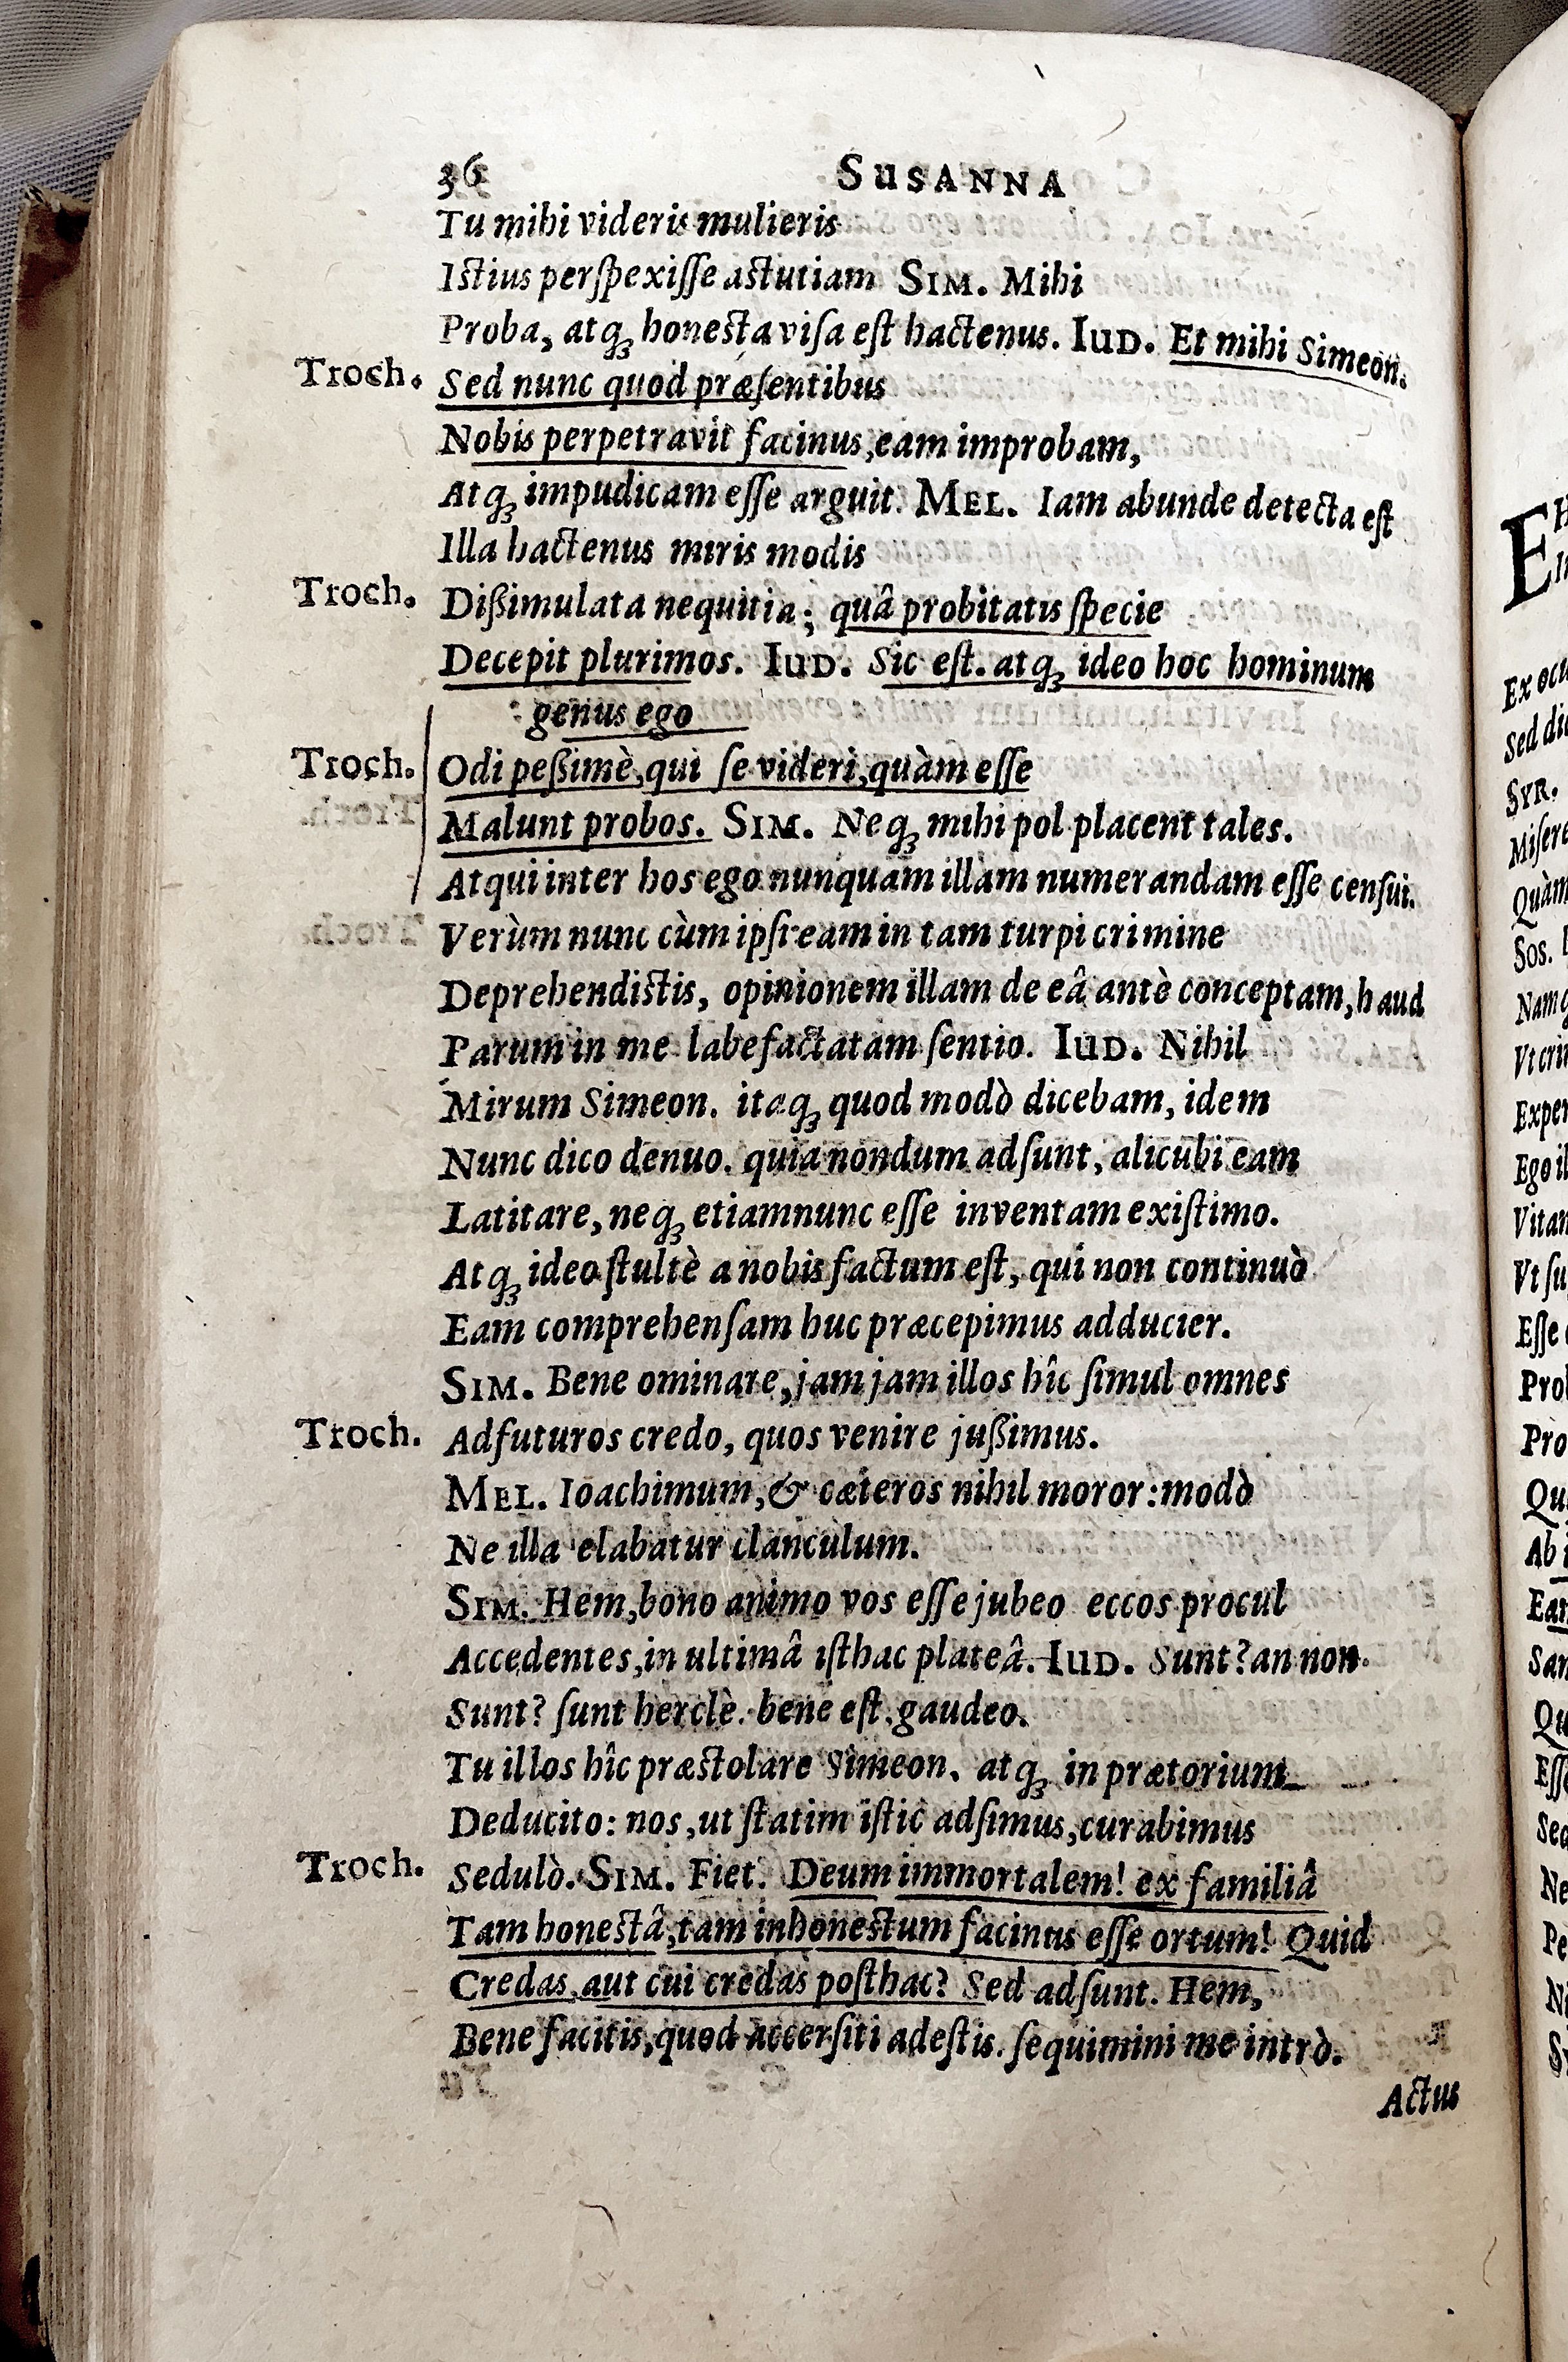 36 SUSANNA
Tu mihi videris mulieris
Istius perspexisse astutiam SIM. Mihi
Proba, atq; honesta visa est hactenus. IUD. Et mihi Simeon.
Troch. Sed nunc quod præsentibus
Nobis perpetravit facinus, eam improbam,
Atq; impudicam esse arguit. MEL. Iam abunde detecta est
Illa hactenus miris modis
Troch. Dißimulata nequitia; quâ probitatis specie
Decepit plurimos. IUD. Sic est. atq; ideo hoc hominum
genus ego
Troch. Odi peßimè, qui se videri, quàm esse
Malunt probos. SIM. Neq; mihi pol placent tales.
Atqui inter hos ego nunquam illam numerandam esse censui.
Verùm nunc cùm ipsi eam in tam turpi crimine
Deprehendistis, opinionem illam de eâ antè conceptam, haud
Parum in me labefactatam sentio. IUD. Nihil
Mirum Simeon. itaq; quod modò dicebam, idem
Nunc dico denuo. quia nondum adsunt, alicubi eam
Latitare, neq; etiamnunc esse inventam existimo.
Atq; ideo stultè a nobis factum est, qui non continuò
Eam comprehensam huc præcepimus adducier.
SIM. Bene ominare, jam jam illos hîc simul omnes
Troch. Adfuturos credo, quos venire jußimus.
MEL. Ioachimum, & cæteros nihil moror: modò
Ne illa elabatur clanculum.
SIM. Hem, bono animo vos esse jubeo eccos procul
Accedentes, in ultimâ isthac plateâ. IUD. Sunt? an non
Sunt? sunt herclè. bene est. gaudeo.
Tu illos hîc præstolare Simeon. atq; in prætorium
Deducito: nos, ut statim istic adsimus, curabimus
Troch. Sedulò. SIM. Fiet. Deum immortalem! ex familiâ
Tam honestâ, tam inhonestum facinus esse ortum! Quid
Credas, aut cui credas posthac? Sed adsunt. Hem,
Bene facitis, quod accersiti adestis. sequimini me intrò.
Actus